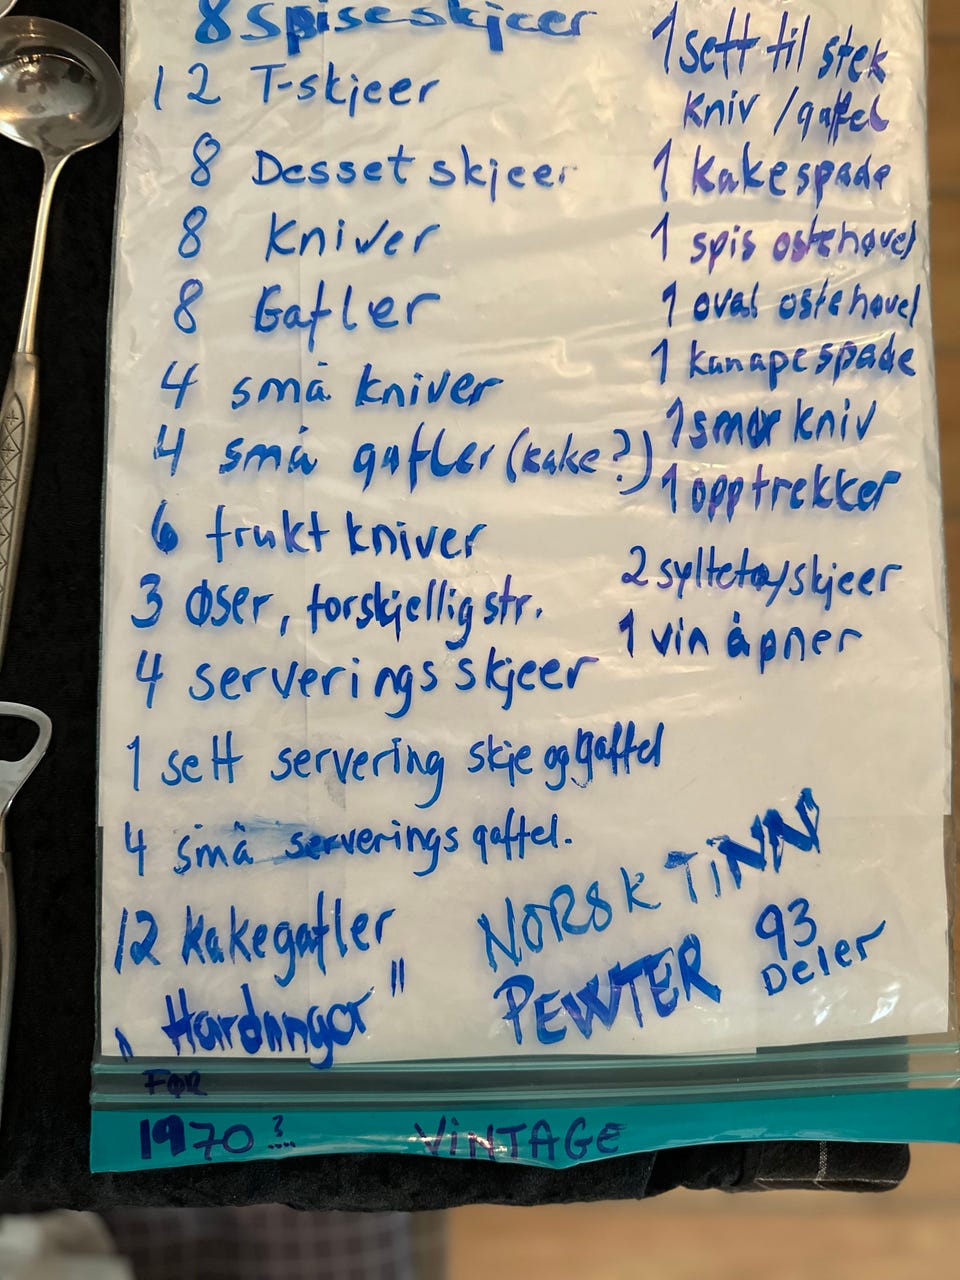 8 Spiseskjeer
12 T-skjeer
8 Desset skjeer
8 Kniver
8 Gafler
4 små kniver
4 små gafler (kake?)
6 frukt kniver
3 Øser, forskjellig str.
4 serverings skjeer
1 sett servering skje og gaffel
4 små serverings gaffel.
12 Kakegafler
1 sett til stek
Kniv / gaffel
1 Kakespade
1 spis ostehøvel
1 oval ostehøvel
1 kanapespade
1 smør kniv
1 opptrekker
2 syltetøyskjeer
1 vin åpner
NORSK TiNN
PEWTER
93
Deler
„ Hardangor "
FØR
1970 ?
ViNTAGE